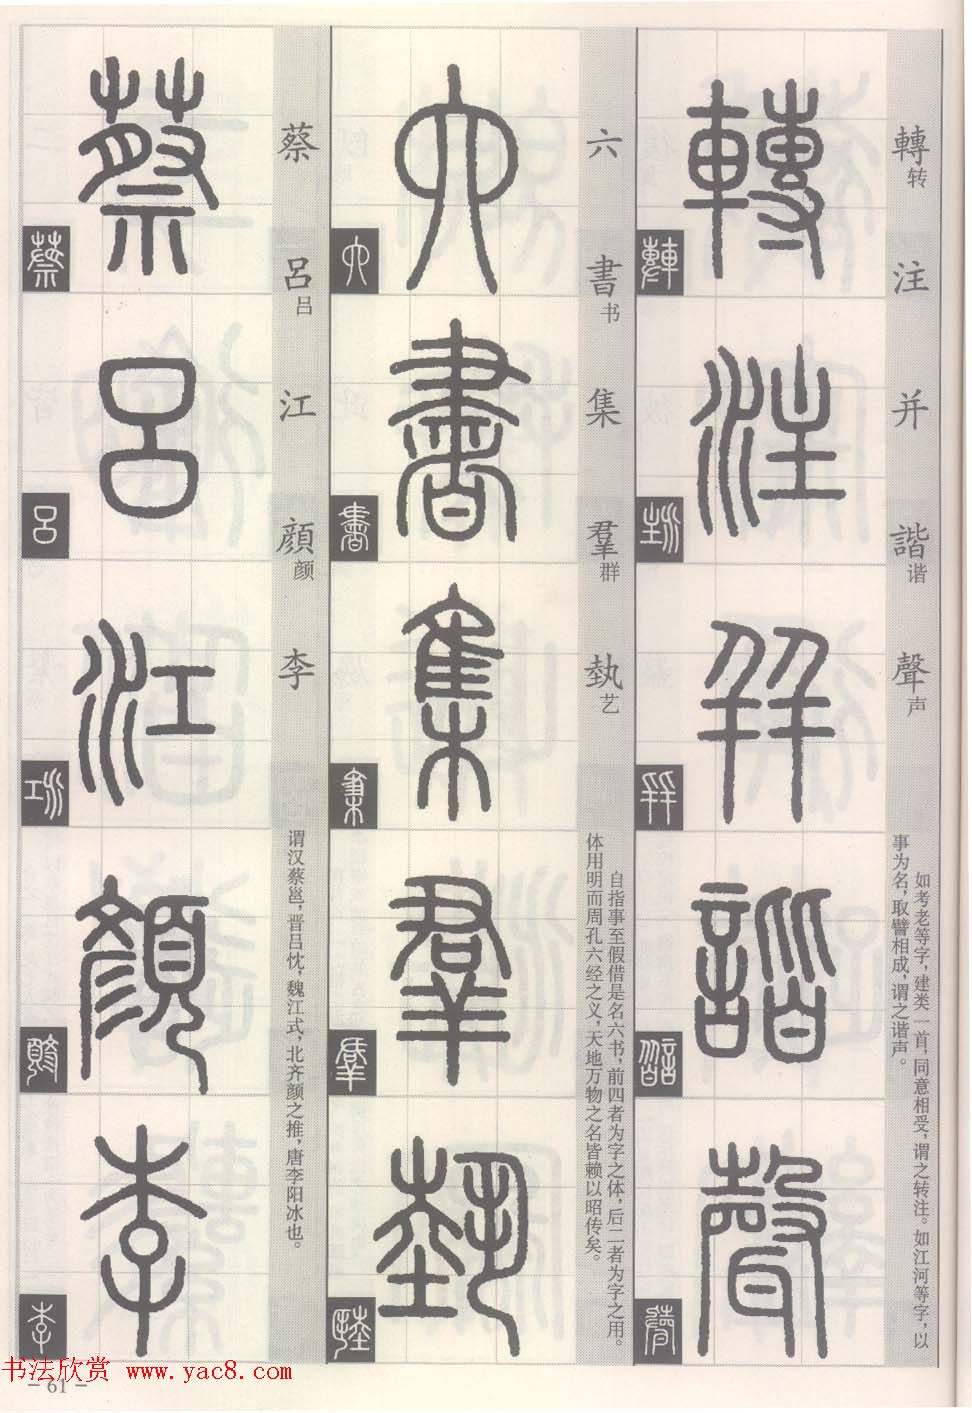 轉转 注 并 諧谐 聲声
如考老等字，建类一首，同意相受，谓之转注。如江河等字，以
事为名，取譬相成，谓之谐声。
轉
注
并
諧
聲
六 書书 集 羣群 埶艺
自指事至假借是名六书，前四者为字之体，后二者为字之用。
体用明而周孔六经之义，天地万物之名皆赖以昭传矣。
六
書
集
羣
埶
蔡 呂吕 江 顔颜 李
谓汉蔡邕，晋吕忱，魏江式，北齐颜之推，唐李阳冰也。
蔡
呂
江
顔
李
书法欣赏 www.yac8.com
－61－